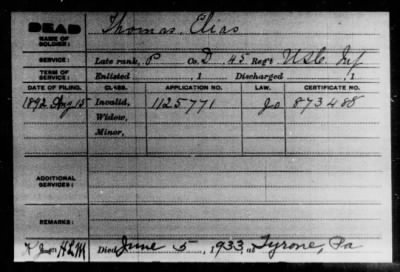 DEAD
NAME OF SOLDIER: Thomas, Elias
SERVICE: Late rank, P Co. D, 45 Reg't USC Inf
TERM OF SERVICE: Enlisted , 1 Discharged , 1
DATE OF FILING. CLASS. APPLICATION NO. LAW. CERTIFICATE NO.
1892 Aug 15 Invalid, 1125771 873488
Widow,
Minor,
ADDITIONAL SERVICES:
REMARKS:
HLM Died June 5, 1933, at Tyrone, Pa